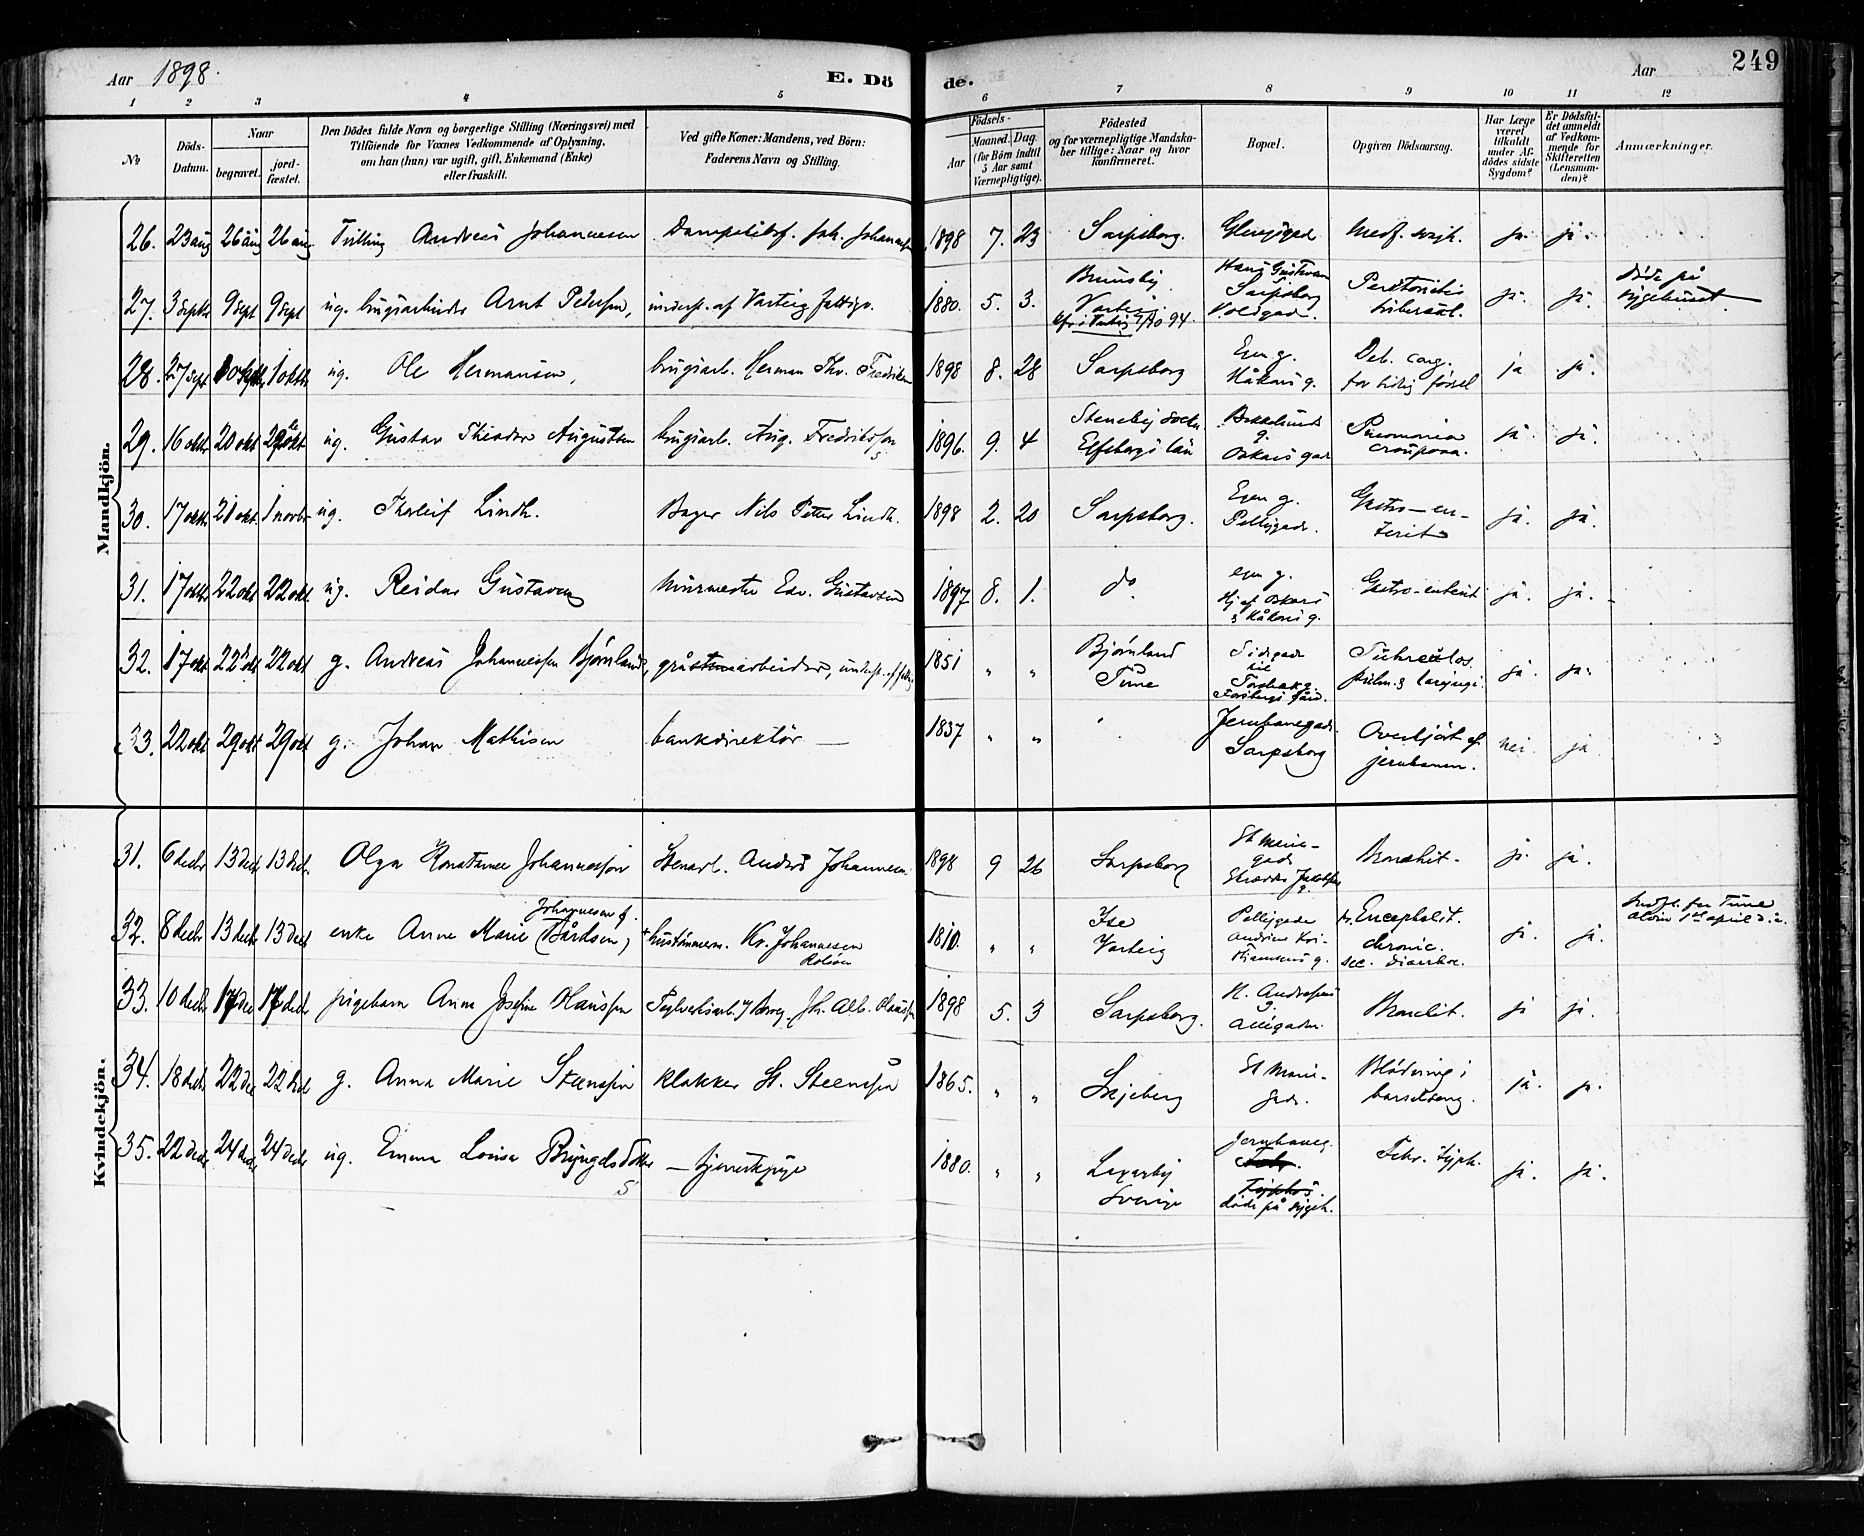 Aar 1898.
E. Dö
de.
Aar
249
1 2 3 4 5 6 7 8 9 10 11 12
No
Döds-Datum.
Naar
begravet.
jord-fæstet.
Den Dödes fulde Navn og borgerlige Stilling (Næringsvei) med
Tilföiende for Voxnes Vedkommende af Oplysning,
om han (hun) var ugift, gift, Enkemand (Enke)
eller fraskilt.
Ved gifte Koner: Mandens, ved Börn:
Faderens Navn og Stilling.
Födsels-
Aar
Maaned. Dag.
(for Börn indtil
5 Aar samt
Værnepligtige).
Födested
og for værnepligtige Mandska-
ber tillige: Naar og hvor
konfirmeret.
Bopæl.
Opgiven Dödsaarsag.
Har Læge
været
tilkaldt
under Af-
dödes sidste
Sygdom?
Er Dödsfal-
det anmeldt
af Vedkom-
mende for
Skifteretten
(Lensman-
den)?
Anmærkninger.
Mandkjön.
26. 23 aug 26 aug 26 aug Tvilling Andreas Johannesen 1898 7. 23 Sarpsborg. ja ja.
27. 3 septbr 9 sept 9 sept ug. brugsarbeider Arnt Pedersen, underst. af Varteig fattigv. 1880. 5. 3. Varteig Sarpsborg Voldgad. ja. ja. döde på sygehuset
28. 27 sept. 1 oktbr ug. Ole Hermansen, brugsarb. Herman Thv. Fredriksen 1898 8. 28 Sarpsborg Egen g. Håkons g. Deb. cong. for tidlig fødsel ja ja.
29. 16 oktbr 20 okt 20 okt ug. Gustav Theodor Augustsen brugsarb. Aug. Fredriksson 1896. 9. 4 Elfsborgs län Oskars gad Pneumonia crouposa. ja ja.
30. 17 oktbr 21 okt. 1 novbr ug. Thorleif Lindh. Bager Nils Petter Lindh. 1898 2. 20 Sarpsborg. Egen g. Pellygade. Gastro-en-terit ja. ja.
31. 17 oktbr 22 okt 22 okt. ug. Reidar Gustavsen murmester Edv. Gustavsen 1897 8. 1. do. egen g. Hj. af Oskars & Håkons g. Gastro-enterit ja. ja.
32. 17 okt 22 okt 22 okt g. Andreas Johannessen Bjørnland, gråstensarbeider, underst. af fattigv. 1851 " " Bjørnland Tune Tuberculos. pulm. & laryngis. ja. ja.
33. 22 okt 29 okt 29 okt g. Johan Mathisen bankdirektör 1837 " " Jernbanegade. Sarpsborg Overkjört af jernbanen. nei. ja
Kvindekjön.
31. 6 decbr 13 decbr 13 decbr Olga Konstance Johannessen Stenarb. Andreas Johannesen 1898 9 26 Sarpsborg St Marie-gade Bronchit. ja. ja.
32. 8 decbr 13 decbr 13 decbr enke Anne Marie Johannesen f. (Bårdsen) hustømmerm. Kr. Johannesen 1810. " " Ise Varteig Pellygade Andrine Kristiansens g. Encephalit. chronic. sec. diarrhoe. ja. ja.
33. 10 decbr 17 dec 17 decbr pigebarn Anna Josefine Hanssen Teglverksarb. 1898 5. 3 Sarpsborg. N. Andresens g. Allégaden. Bronchit. ja ja.
34. 18 decbr 22 dec 22 decbr g. Anna Marie Steenssen klokker H. Steenssen 1865. " " Skjeberg St Marie-gade. Blödning i barselseng. ja. ja.
35. 22 decbr 24 decbr 24 decbr ug. Emma Lovisa Bryngelsdotter — tjenestepige 1880. " " Sverige Jernbaneg. döde på sygeh. Febr. typh. ja. ja.